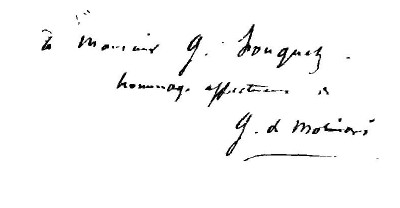 à Monsieur G. Fouquet.
hommage affectueux
G. de Molinari